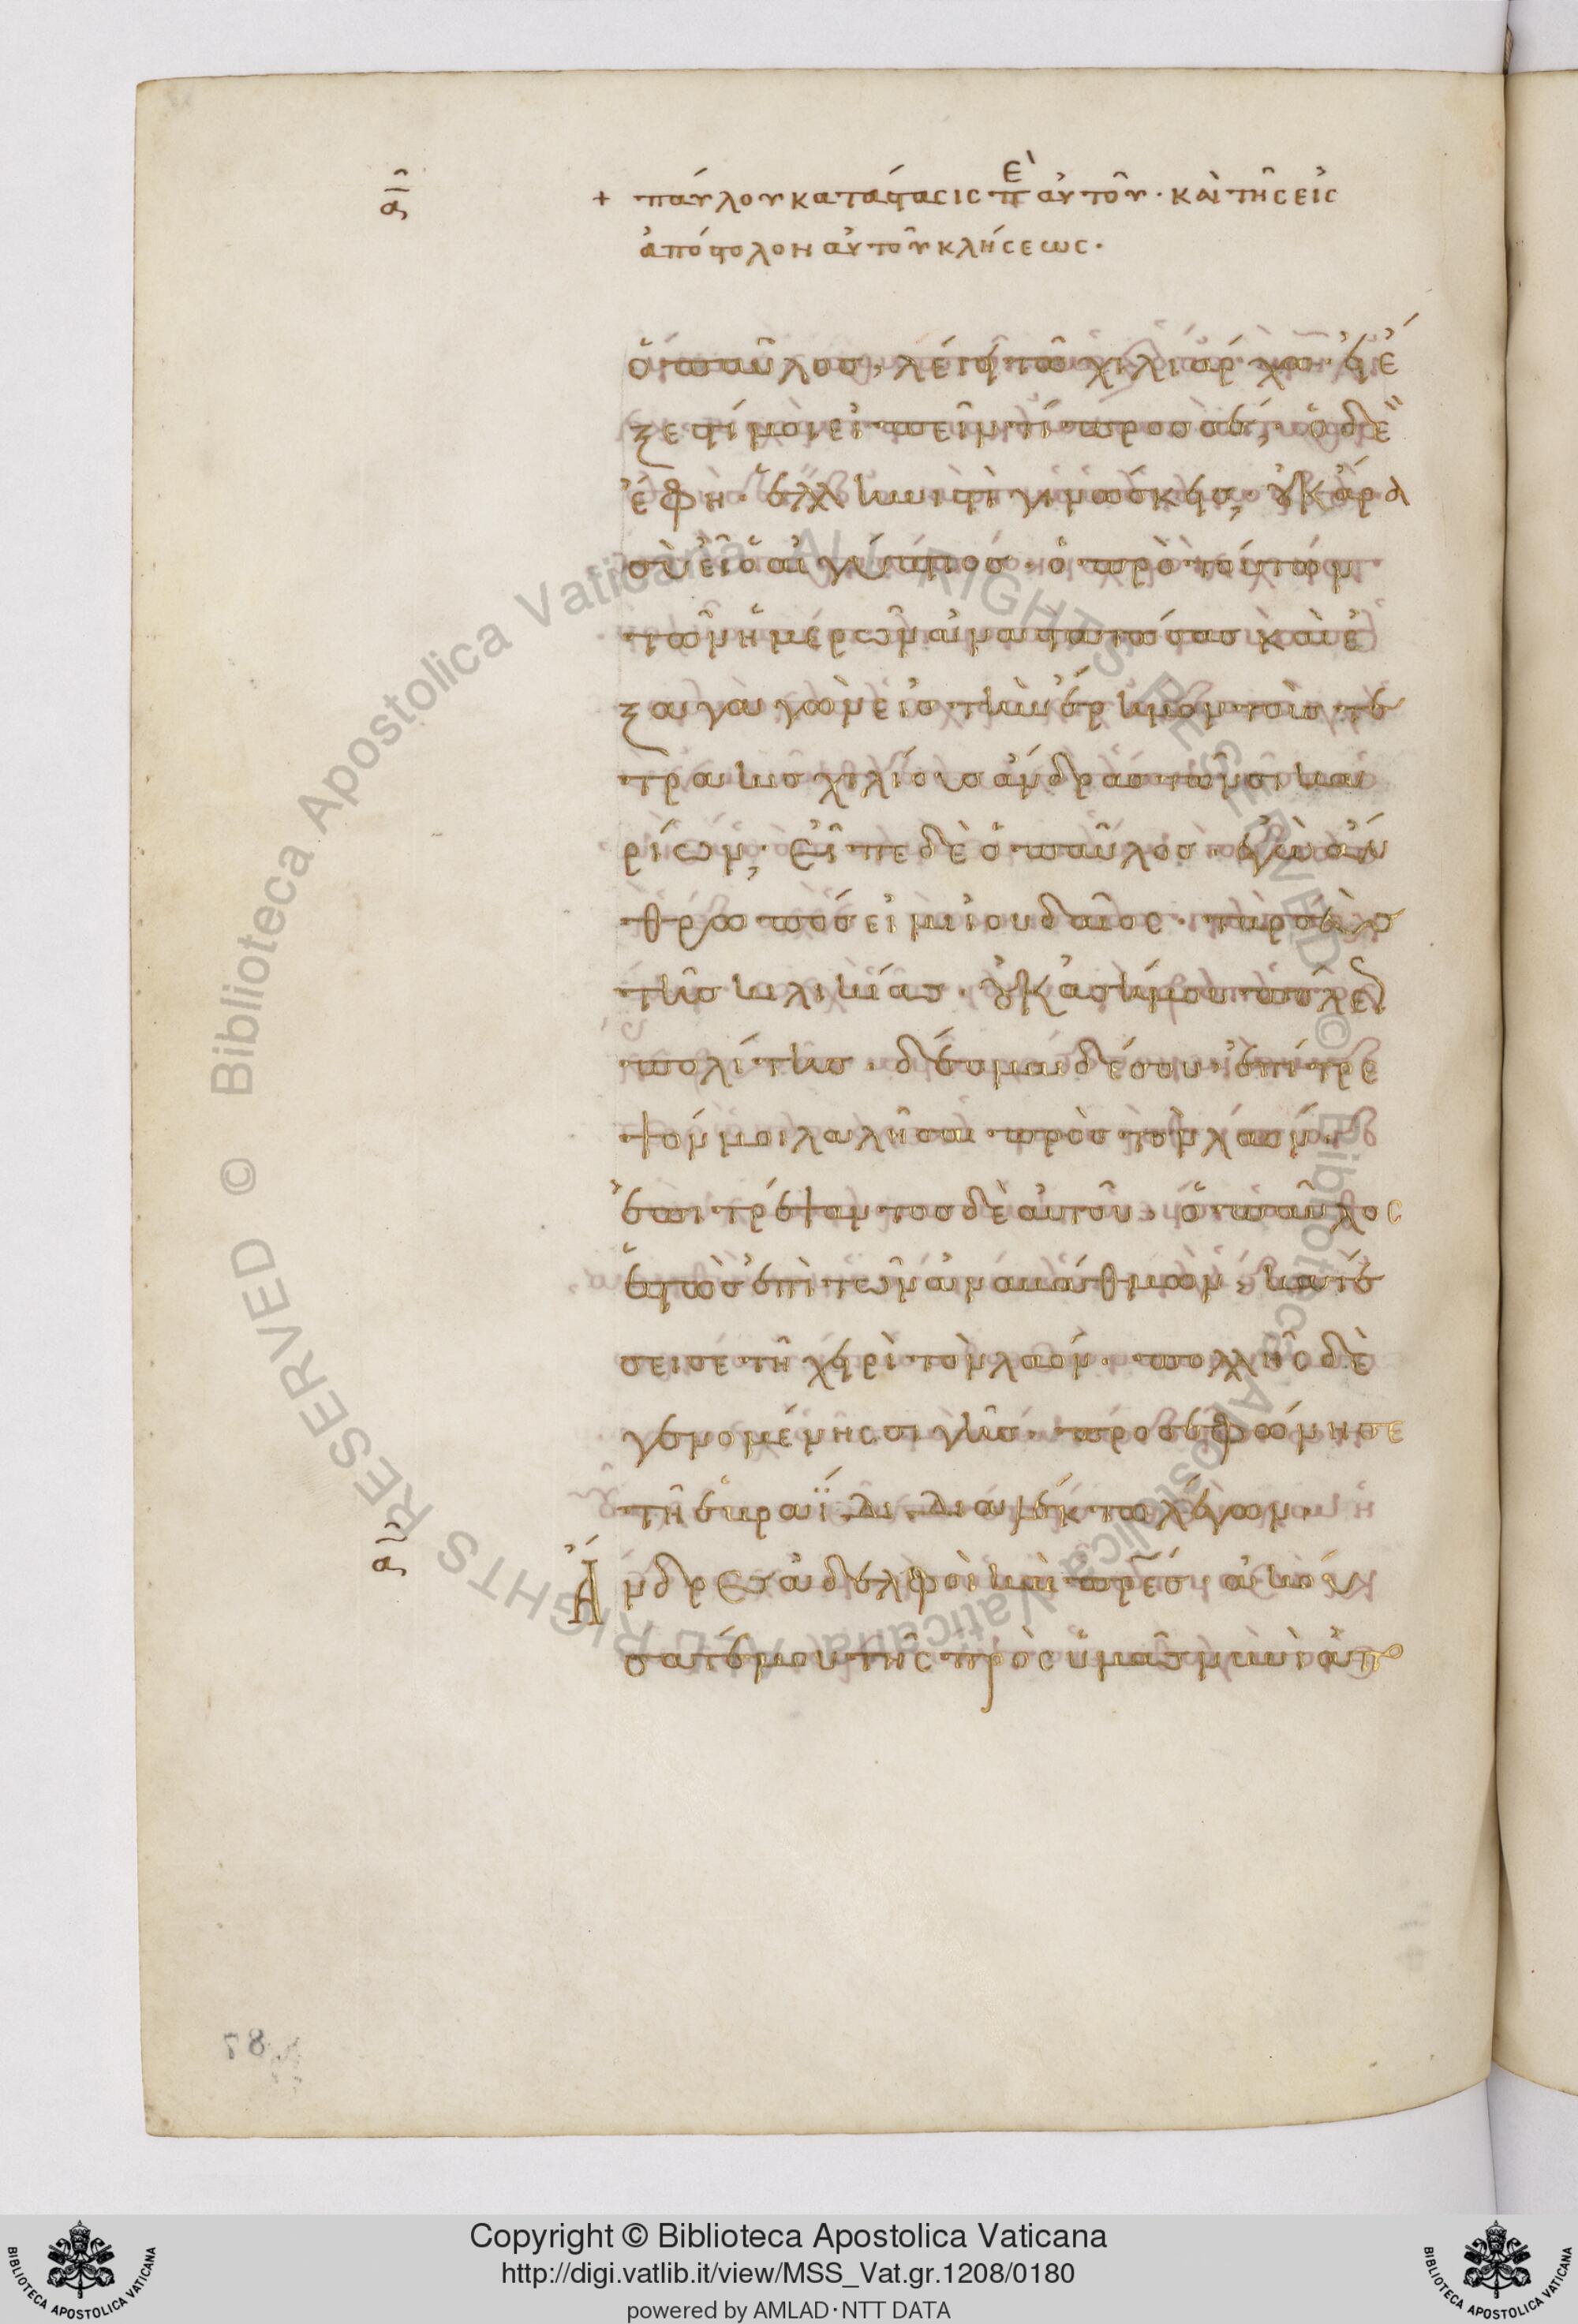 + παύλου κατάστασις περὶ αὐτοῦ · καὶ τῆς εἰς
ἀποστολὴν αὐτοῦ κλήσεως ·
ὁ παῦλος, λέγει τῶ χιλιάρχω · εἰ ἔ
ξεστί μοι εἰπεῖν τί πρὸς σέ; ὁ δὲ
ἔφη · ἑλληνιστὶ γινώσκεις; οὐκ ἄρα
σὺ εἶ ὁ αἰγύπτιος · ὁ πρὸ τούτων
τῶν ἡμερῶν ἀναστατώσας καὶ ἐ
ξαγαγὼν εἰς τὴν ἔρημον τοὺς τε
τρακισχιλίους ἄνδρας τῶν σικα
ρίων; εἶπε δὲ ὁ παῦλος · ἐγὼ ἄν
θρωπος εἰμι ἰουδαῖος · ταρσεὺς
τῆς κιλικίας · οὐκ ἀσήμου πόλε
πολίτης · δέομαι δέ σου · ἐπίτρε
ψόν μοι λαλῆσαι πρὸς τὸν λαόν ·
ἐπιτρέψαντος δὲ αὐτοῦ · ὁ παῦλος
ἑστὼς ἐπὶ τῶν ἀναβαθμῶν, κατέ
σεισε τῆ χειρὶ τὸν λαόν · πολλῆς δὲ
γενομένης σιγῆς · προσεφώνησε
τῆ ἑβραΐδι διαλέκτω λέγων ·
Ἄνδρες ἀδελφοὶ καὶ πρες ἀκού
σατέ μου τῆς πρὸς ὑμᾶς νυνὶ ἀπο
78
Copyright © Biblioteca Apostolica Vaticana
http://digi.vatlib.it/view/MSS_Vat.gr.1208/0180
powered by AMLAD·NTT DATA
BIBLIOTECA APOSTOLICA VATICANA
BIBLIOTECA APOSTOLICA VATICANA